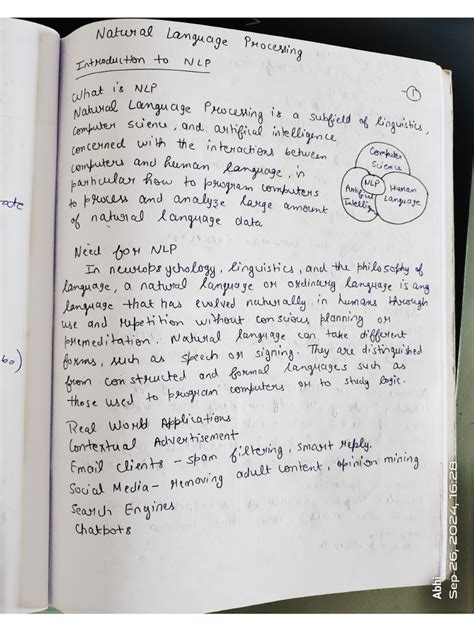 Natural Language Processing
Introduction to NLP
①
What is NLP
Natural Language Processing is a subfield of linguistics,
computer science, and artificial intelligence
concerned with the interactions between
computers and human language, in
particular how to program computers
to process and analyze large amount
of natural language data
Computer
Science
NLP
Artificial
Intelligen
Human
Language
Need for NLP
In neuropsychology, linguistics, and the philosophy of
language, a natural language or ordinary language is any
language that has evolved naturally in humans through
use and repetition without conscious planning or
premeditation. Natural language can take different
forms, such as speech or signing. They are distinguished
from constructed and formal languages such as
those used to program computers or to study logic.
Real World Applications
Contextual Advertisement
Email Clients - spam filtering, smart reply.
Social Media - removing adult content, opinion mining
Search Engines
Chatbots
Abhi
Sep-26, 2024, 16:28